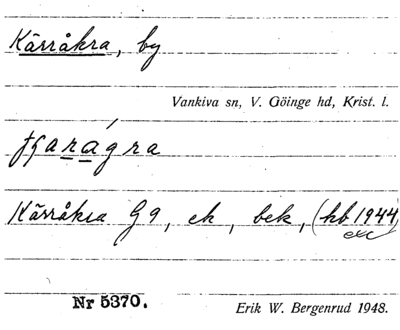 Kärråkra, by
Vankiva sn, V. Göinge hd, Krist. l.
Kärråkra G9, ek, bek, (kb 1944)
Nr 5370.
Erik W. Bergenrud 1948.